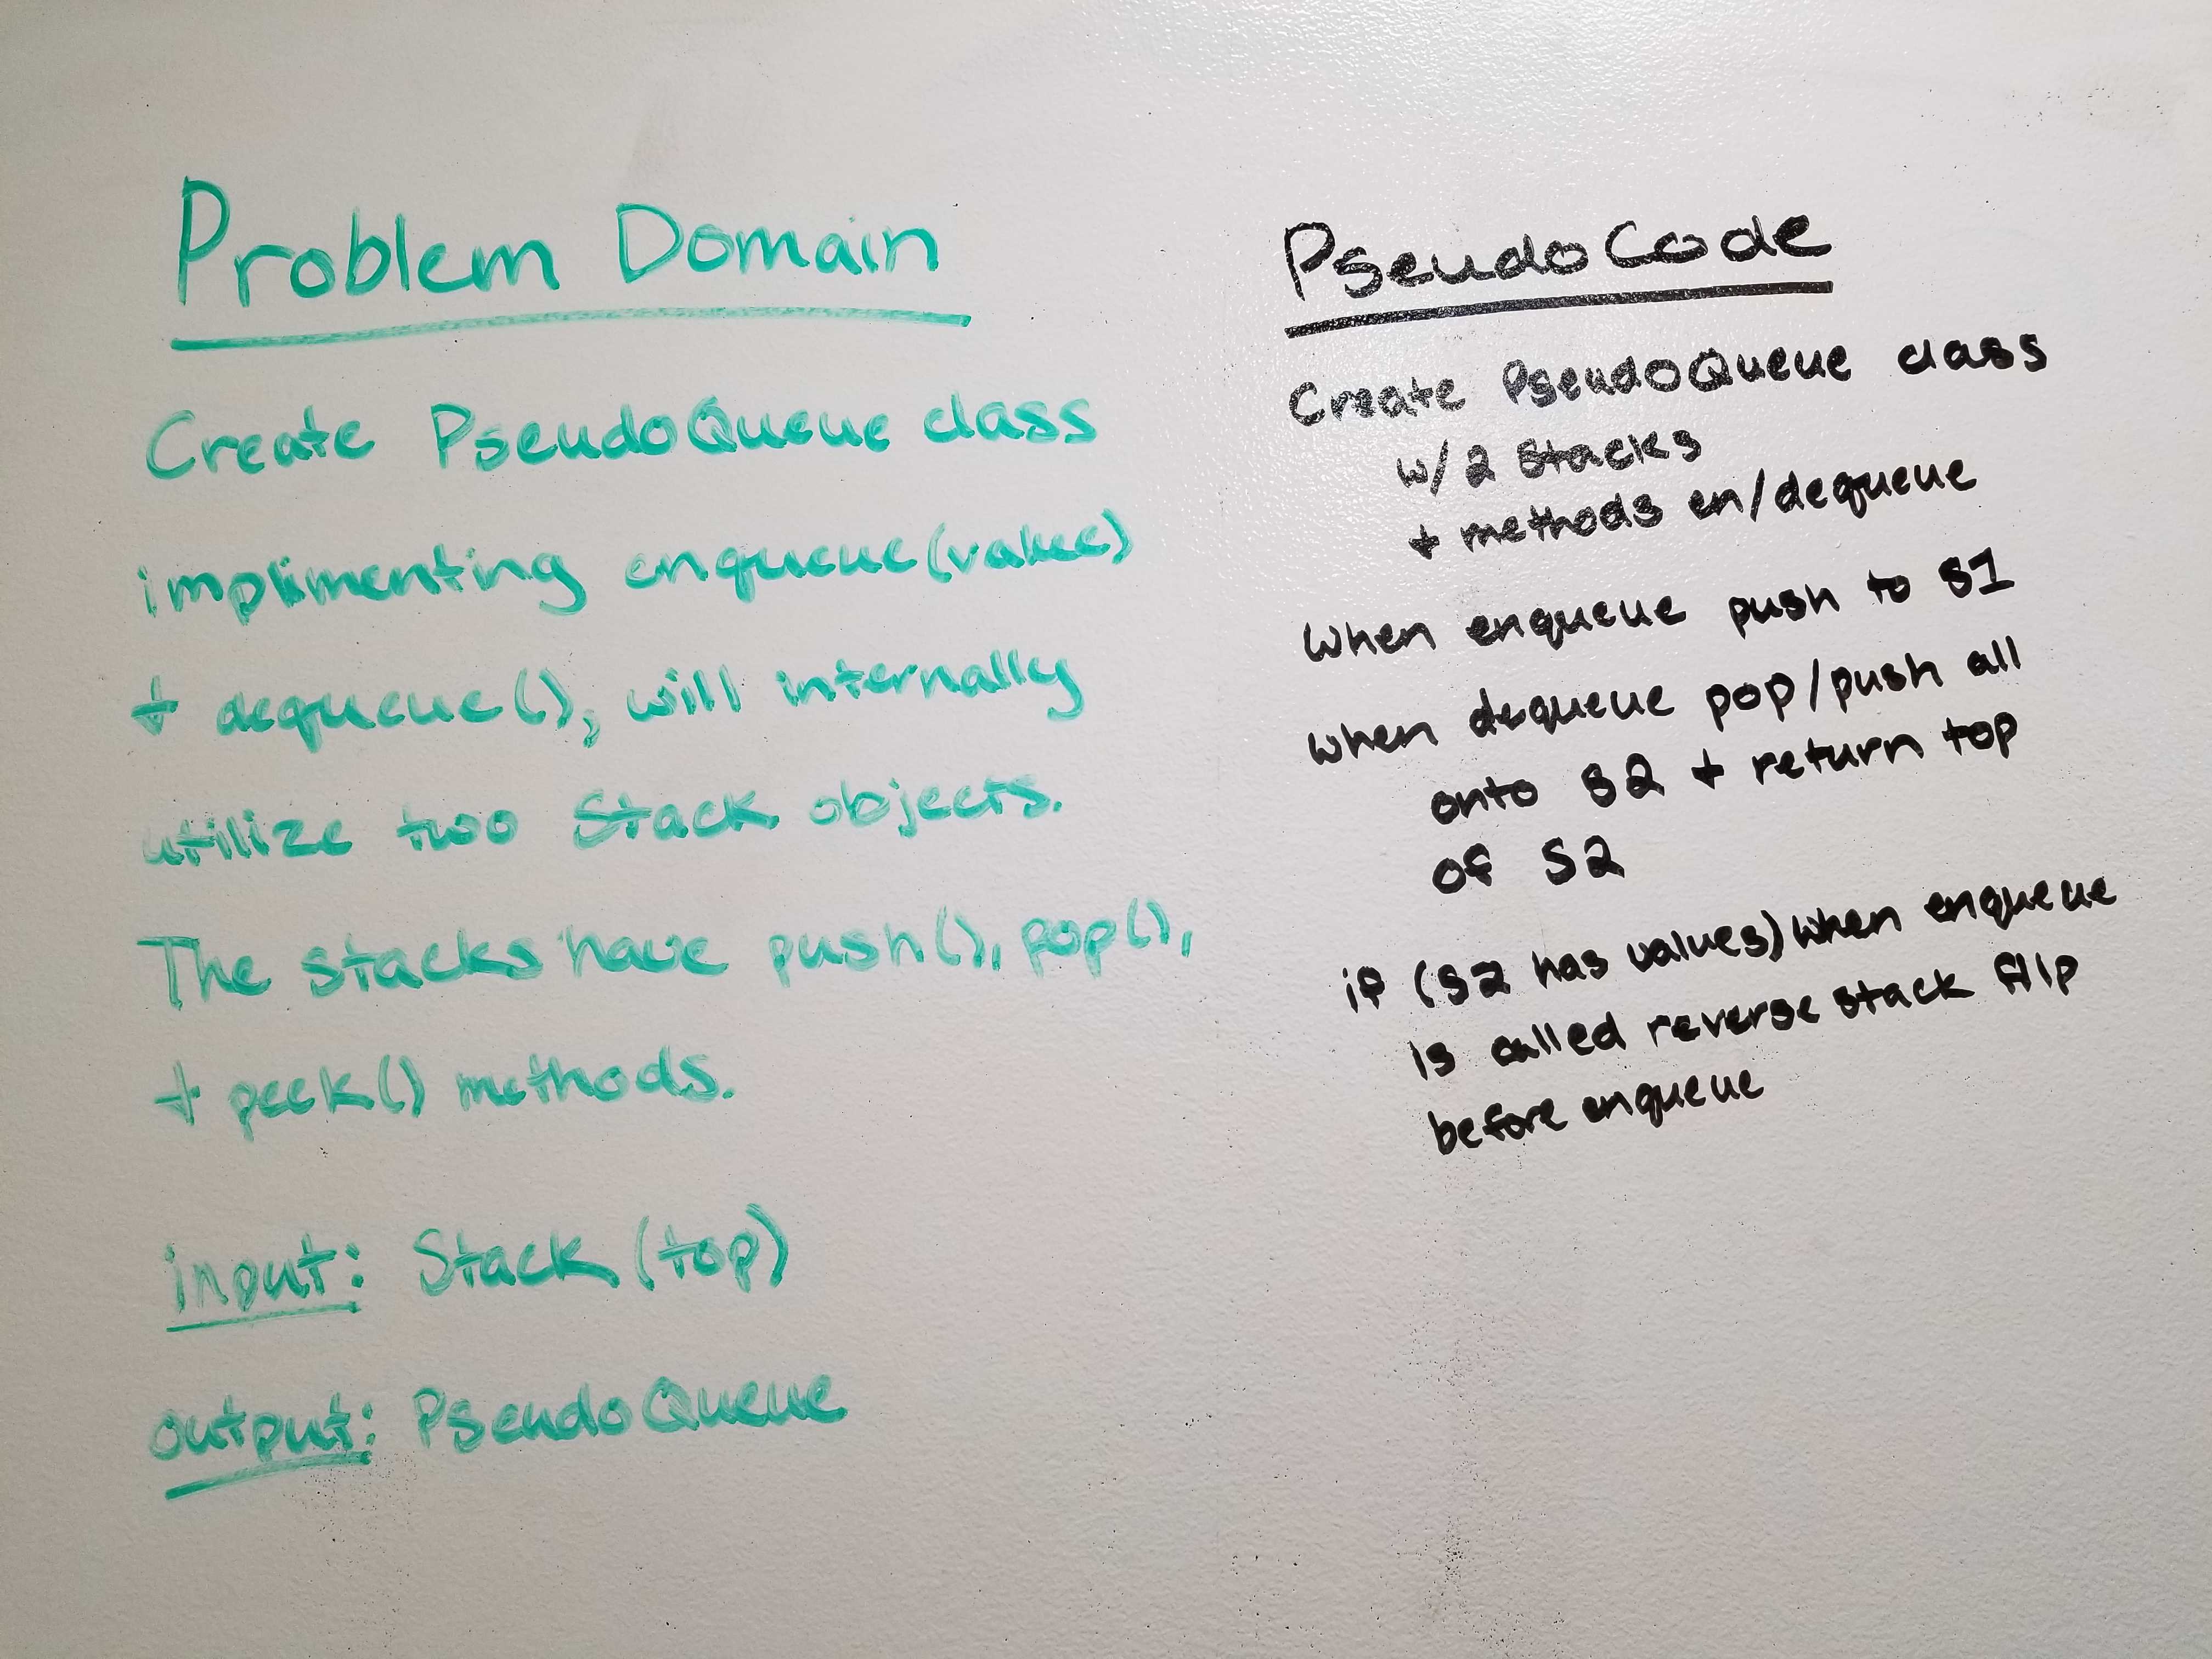 Problem Domain
Create PseudoQueue class
implimenting enqueue(value)
+ dequeue(), will internally
utilize two Stack objects.
The stacks have push(), pop(),
+ peek() methods.
input: Stack (top)
output: PseudoQueue
PseudoCode
Create PseudoQueue class
w/ 2 Stacks
+ methods en/dequeue
when enqueue push to S1
when dequeue pop/push all
onto S2 + return top
of S2
if (S2 has values) when enqueue
is called reverse stack flip
before enqueue